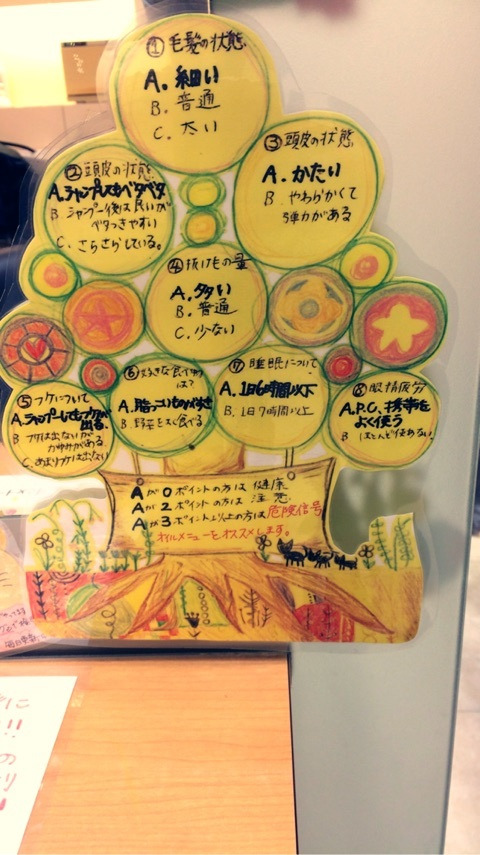 ①毛髪の状態
A. 細い
B. 普通
C. 太い
②頭皮の状態
A. シャンプーしてもベタベタ
B シャンプー後は良いが
ベタつきやすい
C. さらさらしている。
③頭皮の状態
A. かたい
B. やわらかくて
弾力がある
④抜け毛の量
A. 多い
B. 普通
C. 少ない
⑤フケについて
A. シャンプーしてもフケが
出る。
B フケは出ないが
かゆみがある
C. あまりフケは出ない
⑥好きな食べ物
は?
A. 脂っこいものが好き
B. 野菜をよく食べる
⑦睡眠について
A. 1日6時間以下
B. 1日7時間以上
⑧眼精疲労
A. P.C、携帯を
よく使う
B ほとんど使わない
Aが0ポイントの方は 健康
Aが2ポイントの方は 注意
Aが3ポイント以上の方は危険信号
オイルメニューをオススメします。
に
!!
の